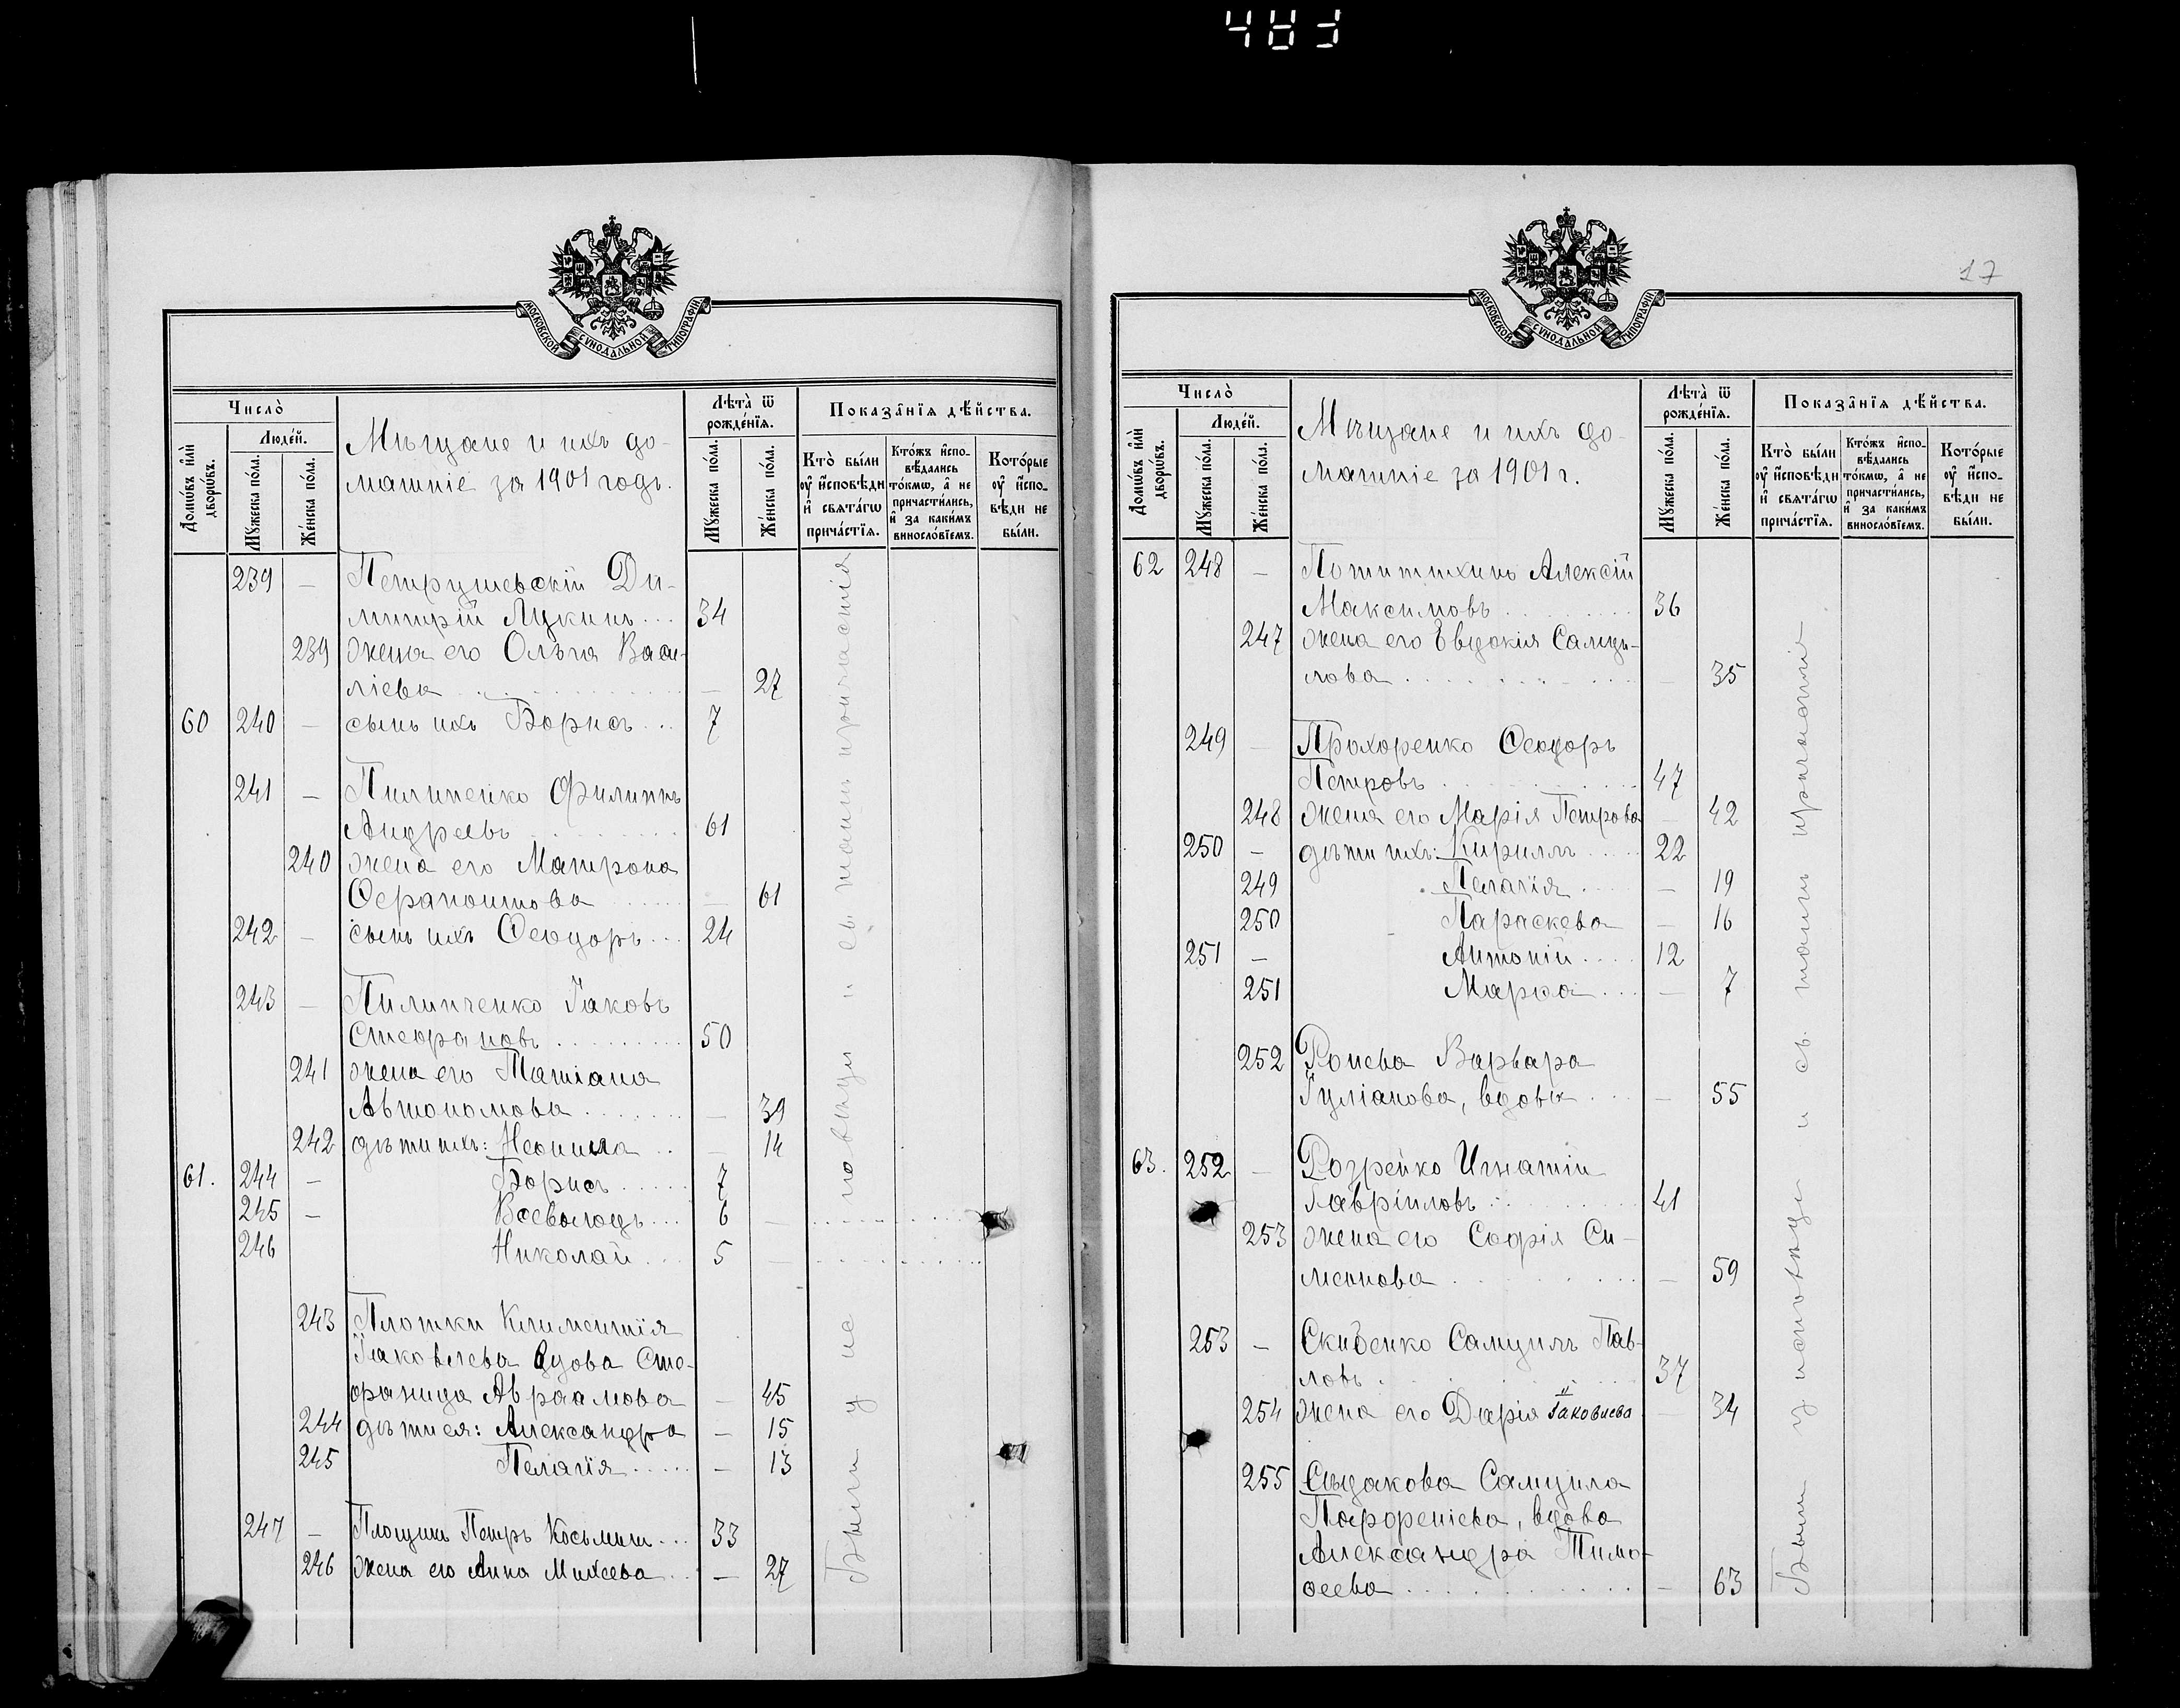 483
МОСКОВСКОЙ СѴНОДАЛЬНОЙ ТИПОГРАФІИ.
Число̀
Домѡ́въ и҆лѝ дворѡ́въ.
Люде́й.
Мꙋ́жеска по́ла.
Же́нска по́ла.
Мѣщане и ихъ до-
машніе за 1901 годъ.
Лѣ́та ѿ рожде́нїѧ.
Мꙋ́жеска по́ла.
Же́нска по́ла.
Показа̑нїѧ дѣ́йства.
Кто̀ бы́ли оу҆ и҆сповѣ́ди и҆ свѧта́гѡ прича́стїѧ.
Кто́жъ и҆спо-вѣ́дались то́кмѡ, а҆ не причасти́лись, и҆ за каки́мъ виносло́вїемъ.
Кото́рые оу҆ и҆спо-вѣ́ди не бы́ли.
239 — Петрушевскій Ди-
митрій Лукинъ... 34
239 жена его Ольга Васи-
ліева — 27
60 240 — сынъ ихъ Борисъ... 7
241 — Пилипенко Филиппъ
Андреевъ 61
240 жена его Матрона
Ѳерапонтова — 61
242 — сынъ ихъ Ѳеодоръ... 24
243 — Пилипченко Іаковъ
Стефановъ 50
241 жена его Татіана
Автономова — 39
242 дѣти ихъ: Неонила .. — 14
61. 244 — Борисъ 7
245 — Всеволодъ... 6 —
246 Николай... 5 —
243 Плотки Климентія
Іаковлева вдова Сте-
фанида Авраамова — 45
244 дѣти ея: Александра — 15
245 Пелагія — 13
247 — Площикъ Петръ Косьминъ... 33
246 жена его Анна Михеева — 27
Были у исповѣди и св. таинъ причастія
17
МОСКОВСКОЙ СѴНОДАЛЬНОЙ ТИПОГРАФІИ.
Число̀
Домѡ́въ и҆лѝ дворѡ́въ.
Люде́й.
Мꙋ́жеска по́ла.
Же́нска по́ла.
Мѣщане и ихъ до-
машніе за 1901 г.
Лѣ́та ѿ рожде́нїѧ.
Мꙋ́жеска по́ла.
Же́нска по́ла.
Показа̑нїѧ дѣ́йства.
Кто̀ бы́ли оу҆ и҆сповѣ́ди и҆ свѧта́гѡ прича́стїѧ.
Кто́жъ и҆спо-вѣ́дались то́кмѡ, а҆ не причасти́лись, и҆ за каки́мъ виносло́вїемъ.
Кото́рые оу҆ и҆спо-вѣ́ди не бы́ли.
62 248 — Алексій
Максимовъ 36
247 жена его Евдокія Самуи-
лова — 35
249 — Прохоренко Ѳеодоръ
Петровъ 47
248 жена его Марія Петрова — 42
250 — дѣти ихъ: Кириллъ 22
249 Пелагія — 19
250 Параскева — 16
251 — Антоній 12
251 Марѳа — 7
252 Ронева Варвара
Іуліанова, вдова — 55
63. 252 — Розренко Игнатій
Гавріиловъ 41
253 жена его Софія Си-
меонова — 59
253 — Скибенко Самуилъ Пав-
ловъ 37
254 жена его Дарія Іаковлева — 34
255 Сыдакова Самуила
Парфеніева, вдова
Александра Тимо-
ѳеева — 63
Были у исповѣди и св. таинъ причастія